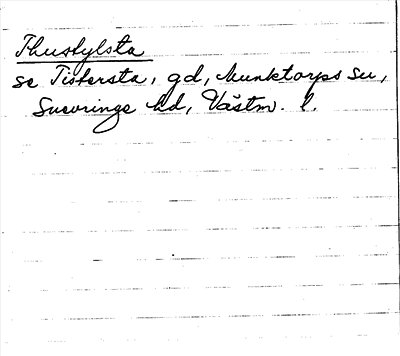 Thuskylsta
se Tiskersta, gd, Munktorps sn,
Snevringe hd, Västm. l.